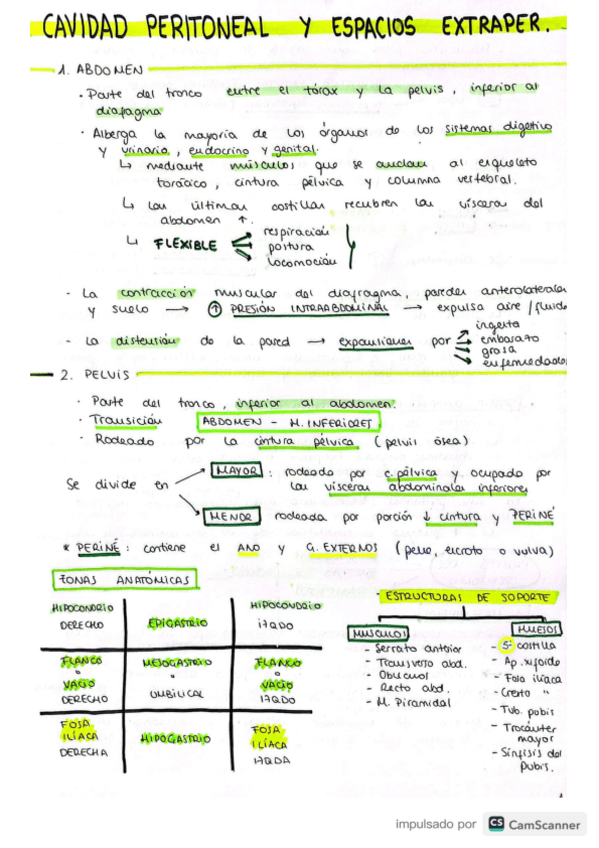 CAVIDAD PERITONEAL Y ESPACIOS EXTRAPER.
1. ABDOMEN
· Parte del tronco entre el tórax y la pelvis, inferior al
diafragma
· Alberga la mayoría de los órganos de los sistemas digestivo
y urinario, endocrino y genital.
↳ mediante músculos que se anclan al esqueleto
torácico, cintura pélvica y columna vertebral.
↳ las últimas costillas recubren las vísceras del
abdomen ↑.
↳ FLEXIBLE
respiración
postura
locomoción
- La contracción muscular del diafragma, paredes anterolaterales
y suelo → ↑ PRESIÓN INTRAABDOMINAL → expulsa aire / fluido
- La distensión de la pared → expansiones por
ingesta
embarazo
grasa
enfermedades
2. PELVIS
· Parte del tronco, inferior al abdomen.
· Transición ABDOMEN - M. INFERIORES
· Rodeado por la cintura pélvica (pelvis ósea)
Se divide en
MAYOR: rodeado por c. pélvica y ocupado por
las vísceras abdominales inferiores
MENOR rodeada por porción ↓ cintura y PERINÉ
* PERINÉ: contiene el ANO y G. EXTERNOS (pene, escroto o vulva)
ZONAS ANATÓMICAS
HIPOCONDRIO DERECHO
EPIGASTRIO
HIPOCONDRIO IZQDO
FLANCO o VACÍO DERECHO
MESOGASTRIO o UMBILICAL
FLANCO o VACÍO IZQDO
FOSA ILÍACA DERECHA
HIPOGASTRIO
FOSA ILÍACA IZQDA
ESTRUCTURAS DE SOPORTE
MUSCULOS
- Serrato anterior
- Transverso abd.
- Oblicuos
- Recto abd.
- M. Piramidal
HUESOS
- 5ª costilla
- Ap. xifoides
- Fosa ilíaca
- Cresta "
- Tub. pubis
- Trocánter
mayor
- Sínfisis del
pubis.
impulsado por CS CamScanner